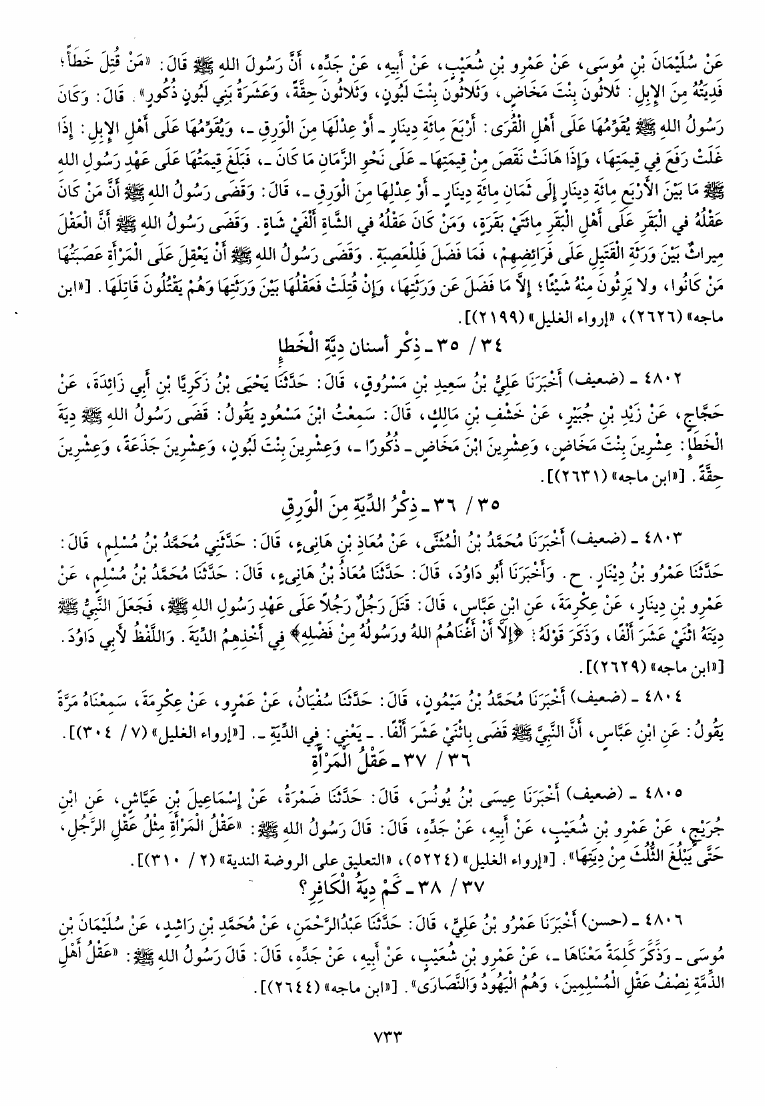 عَنْ سُلَيْمَانَ بْنِ مُوسَى، عَنْ عَمْرِو بْنِ شُعَيْبٍ، عَنْ أَبِيهِ، عَنْ جَدِّهِ، أَنَّ رَسُولَ اللهِ ﷺ قَالَ: «مَنْ قُتِلَ خَطَأً؛
فَدِيَتُهُ مِنَ الإِبِلِ: ثَلاثُونَ بِنْتَ مَخَاضٍ، وَثَلاثُونَ بِنْتَ لَبُونٍ، وَثَلاثُونَ حِقَّةً، وَعَشَرَةُ بَنِي لَبُونٍ ذُكُورٍ». قَالَ: وَكَانَ
رَسُولُ اللهِ ﷺ يُقَوِّمُهَا عَلَى أَهْلِ الْقُرَى: أَرْبَعَ مِائَةِ دِينَارٍ ـ أَوْ عِدْلَهَا مِنَ الْوَرِقِ ـ، وَيُقَوِّمُهَا عَلَى أَهْلِ الإِبِلِ: إِذَا
غَلَتْ رَفَعَ فِي قِيمَتِهَا، وَإِذَا هَانَتْ نَقَصَ مِنْ قِيمَتِهَا ـ عَلَى نَحْوِ الزَّمَانِ مَا كَانَ ـ، فَبَلَغَ قِيمَتُهَا عَلَى عَهْدِ رَسُولِ اللهِ
ﷺ مَا بَيْنَ الأَرْبَعِ مِائَةِ دِينَارٍ إِلَى ثَمَانِ مِائَةِ دِينَارٍ ـ أَوْ عِدْلِهَا مِنَ الْوَرِقِ ـ، قَالَ: وَقَضَى رَسُولُ اللهِ ﷺ أَنَّ مَنْ كَانَ
عَقْلُهُ فِي الْبَقَرِ عَلَى أَهْلِ الْبَقَرِ مِائَتَيْ بَقَرَةٍ، وَمَنْ كَانَ عَقْلُهُ فِي الشَّاةِ أَلْفَيْ شَاةٍ. وَقَضَى رَسُولُ اللهِ ﷺ أَنَّ الْعَقْلَ
مِيراثٌ بَيْنَ وَرَثَةِ الْقَتِيلِ عَلَى فَرَائِضِهِمْ، فَمَا فَضَلَ فَلِلْعَصَبَةِ. وَقَضَى رَسُولُ اللهِ ﷺ أَنْ يَعْقِلَ عَلَى الْمَرْأَةِ عَصَبَتُهَا
مَنْ كَانُوا، ولا يَرِثُونَ مِنْهُ شَيْئًا؛ إِلَّا مَا فَضَلَ عَن وَرَثَتِهَا، وَإِنْ قُتِلَتْ فَعَقْلُهَا بَيْنَ وَرَثَتِهَا وَهُمْ يَقْتُلُونَ قَاتِلَهَا. [«ابن
ماجه» (٢٦٢٦)، «إرواء الغليل» (٢١٩٩)].
٣٤/ ٣٥ ـ ذِكْر أسنان دِيَّةِ الْخَطإِ
٤٨٠٢ ـ (ضعيف) أَخْبَرَنَا عَلِيُّ بْنُ سَعِيدِ بْنِ مَسْرُوقٍ، قَالَ: حَدَّثَنَا يَحْيَى بْنُ زَكَرِيَّا بْنِ أَبِي زَائِدَةَ، عَنْ
حَجَّاجٍ، عَنْ زَيْدِ بْنِ جُبَيْرٍ، عَنْ خَشْفِ بْنِ مَالِكٍ، قَالَ: سَمِعْتُ ابْنَ مَسْعُودٍ يَقُولُ: قَضَى رَسُولُ اللهِ ﷺ دِيَةَ
الْخَطَإِ: عِشْرِينَ بِنْتَ مَخَاضٍ، وَعِشْرِينَ ابْنَ مَخَاضٍ ـ ذُكُورًا ـ، وَعِشْرِينَ بِنْتَ لَبُونٍ، وَعِشْرِينَ جَذَعَةً، وَعِشْرِينَ
حِقَّةً. [«ابن ماجه» (٢٦٣١)].
٣٥/ ٣٦ ـ ذِكْرُ الدِّيَةِ مِنَ الْوَرِقِ
٤٨٠٣ ـ (ضعيف) أَخْبَرَنَا مُحَمَّدُ بْنُ الْمُثَنَّى، عَنْ مُعَاذِ بْنِ هَانِىءٍ، قَالَ: حَدَّثَنِي مُحَمَّدُ بْنُ مُسْلِمٍ، قَالَ:
حَدَّثَنَا عَمْرُو بْنُ دِيْنَارٍ. ح. وَأَخْبَرَنَا أَبُو دَاوُدَ، قَالَ: حَدَّثَنَا مُعَاذُ بْنُ هَانِىءٍ، قَالَ: حَدَّثَنَا مُحَمَّدُ بْنُ مُسْلِمٍ، عَنْ
عَمْرِو بْنِ دِينَارٍ، عَنْ عِكْرِمَةَ، عَنِ ابْنِ عَبَّاسٍ، قَالَ: قَتَلَ رَجُلٌ رَجُلاً عَلَى عَهْدِ رَسُولِ اللهِ ﷺ، فَجَعَلَ النَّبِيُّ ﷺ
دِيَتَهُ اثْنَيْ عَشَرَ أَلْفًا، وَذَكَرَ قَوْلَهُ: ﴿إِلَّا أَنْ أَغْنَاهُمُ اللهُ ورَسُولُهُ مِنْ فَضْلِهِ﴾ فِي أَخْذِهِمُ الدِّيَةَ. وَاللَّفْظُ لأَبِي دَاوُدَ.
[«ابن ماجه» (٢٦٢٩)].
٤٨٠٤ ـ (ضعيف) أَخْبَرَنَا مُحَمَّدُ بْنُ مَيْمُونٍ، قَالَ: حَدَّثَنَا سُفْيَانُ، عَنْ عَمْرٍو، عَنْ عِكْرِمَةَ، سَمِعْنَاهُ مَرَّةً
يَقُولُ: عَنِ ابْنِ عَبَّاسٍ، أَنَّ النَّبِيَّ ﷺ قَضَى بِاثْنَيْ عَشَرَ أَلْفًا. ـ يَعْنِي: فِي الدِّيَةِ ـ. [«إرواء الغليل» (٧/ ٣٠٤)].
٣٦/ ٣٧ ـ عَقْلُ الْمَرْأَةِ
٤٨٠٥ ـ (ضعيف) أَخْبَرَنَا عِيسَى بْنُ يُونُسَ، قَالَ: حَدَّثَنَا ضَمْرَةُ، عَنْ إِسْمَاعِيلَ بْنِ عَيَّاشٍ، عَنِ ابْنِ
جُرَيْجٍ، عَنْ عَمْرِو بْنِ شُعَيْبٍ، عَنْ أَبِيهِ، عَنْ جَدِّهِ، قَالَ: قَالَ رَسُولُ اللهِ ﷺ: «عَقْلُ الْمَرْأَةِ مِثْلُ عَقْلِ الرَّجُلِ،
حَتَّى يَبْلُغَ الثُّلُثَ مِنْ دِيَتِهَا». [«إرواء الغليل» (٥٢٢٤)، «التعليق على الروضة الندية» (٢/ ٣١٠)].
٣٧/ ٣٨ ـ كَمْ دِيَةُ الْكَافِرِ؟
٤٨٠٦ ـ (حسن) أَخْبَرَنَا عَمْرُو بْنُ عَلِيٍّ، قَالَ: حَدَّثَنَا عَبْدُالرَّحْمَنِ، عَنْ مُحَمَّدِ بْنِ رَاشِدٍ، عَنْ سُلَيْمَانَ بْنِ
مُوسَى ـ وَذَكَرَ كَلِمَةً مَعْنَاهَا ـ، عَنْ عَمْرِو بْنِ شُعَيْبٍ، عَنْ أَبِيهِ، عَنْ جَدِّهِ، قَالَ: قَالَ رَسُولُ اللهِ ﷺ: «عَقْلُ أَهْلِ
الذِّمَّةِ نِصْفُ عَقْلِ الْمُسْلِمِينَ، وَهُمُ الْيَهُودُ وَالنَّصَارَى». [«ابن ماجه» (٢٦٤٤)].
٧٣٣